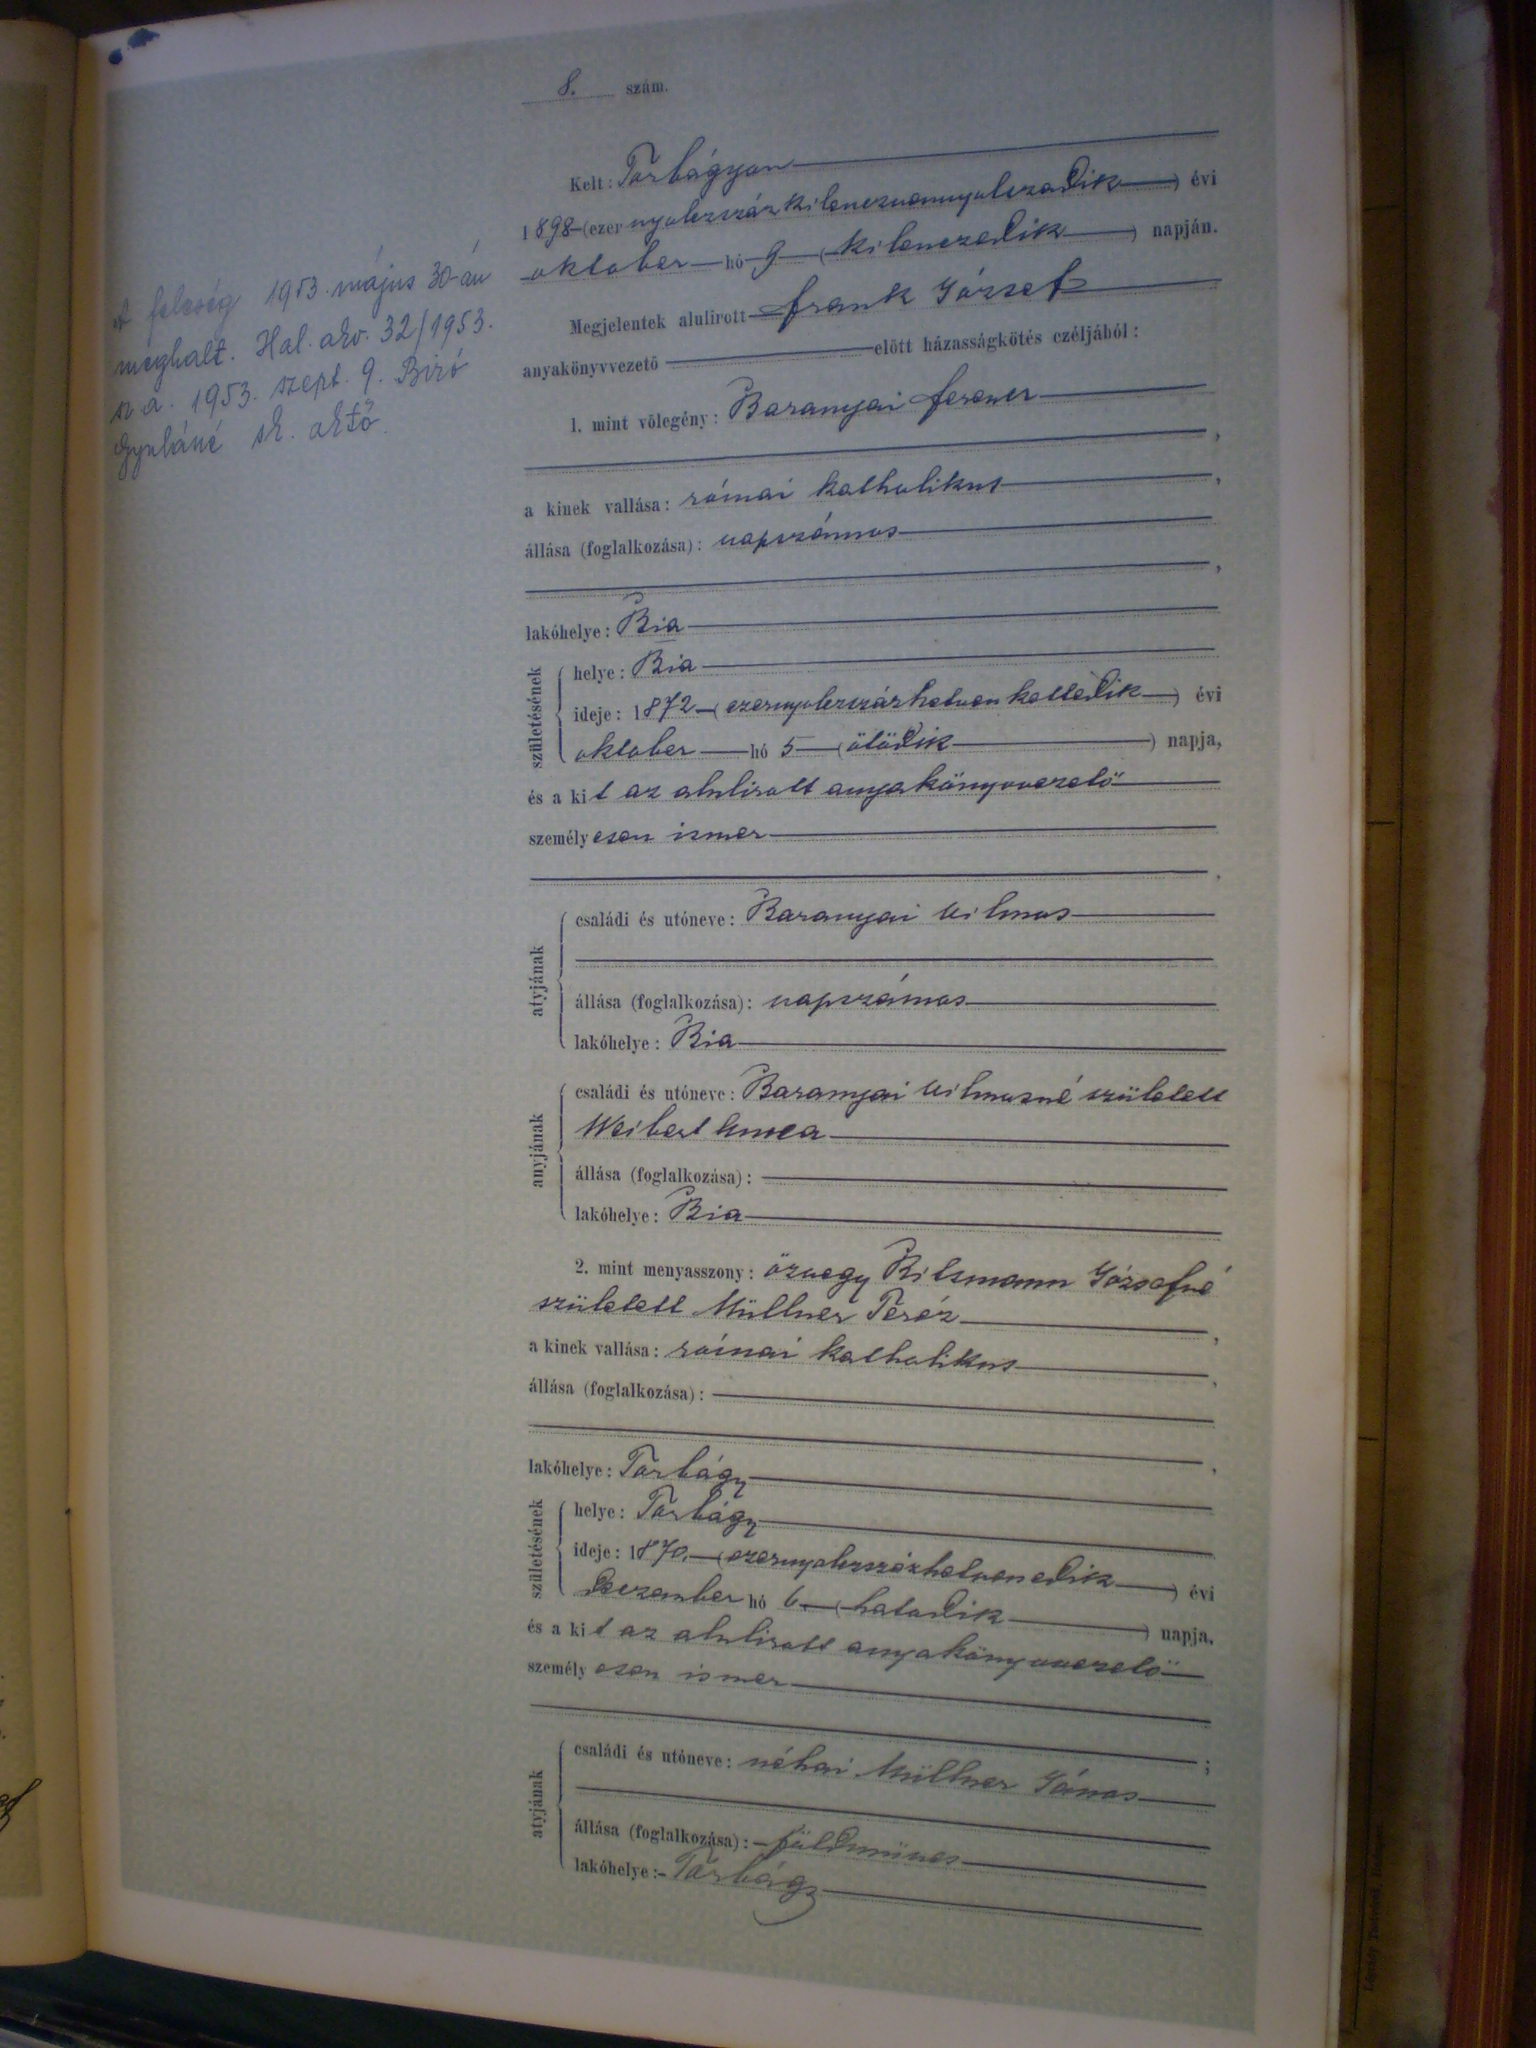 8. szám.
Kelt: Torbágyon
1898 (ezernyolczszázkilenczvennyolczadik) évi
oktober hó 9 (kilenczedik) napján.
Megjelentek alulirott Frank József
anyakönyvvezető előtt házasságkötés czéljából:
1. mint vőlegény: Baranyai Ferencz
a kinek vallása: római katholikus,
állása (foglalkozása): napszámos
lakóhelye: Bia
születésének
helye: Bia
ideje: 1872 (ezernyolczszázhetvenkettedik) évi
oktober hó 5 (ötödik) napja,
és a kit az alulirott anyakönyvvezető
személyesen ismer
atyjának
családi és utóneve: Baranyai Vilmos
állása (foglalkozása): napszámos
lakóhelye: Bia
anyjának
családi és utóneve: Baranyai Vilmosné született
Weibert
állása (foglalkozása):
lakóhelye: Bia
2. mint menyasszony: özvegy Józsefné
született Müllner Teréz,
a kinek vallása: római katholikus,
állása (foglalkozása):
lakóhelye: Torbágy
születésének
helye: Torbágy
ideje: 1870. (ezernyolczszázhetvenedik) évi
Deczember hó 6. (hatodik) napja,
és a kit az alulirott anyakönyvvezető
személyesen ismer
atyjának
családi és utóneve: néhai Müllner János
állása (foglalkozása): földmüves
lakóhelye: Torbágy
A feleség 1953. május 30-án
meghalt. Hal. akv. 32/1953.
sz a. 1953. szept. 9. Biró
Gyuláné sk. aktő.